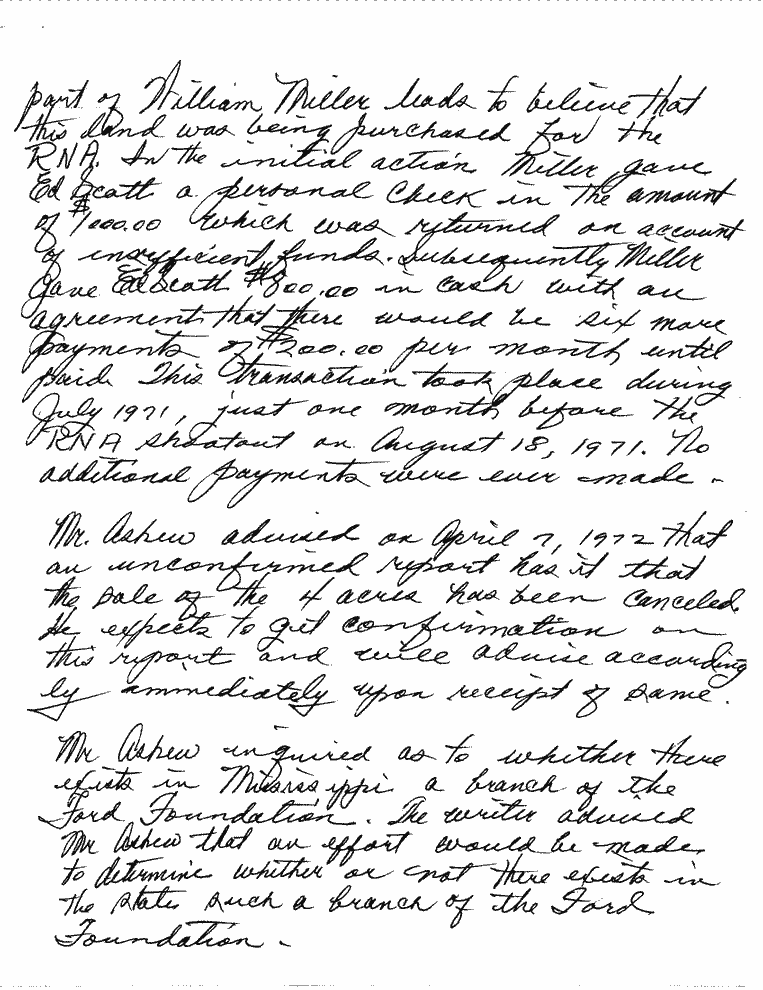 part of William Miller leads to believe that
this land was being purchased for the
RNA. In the initial action Miller gave
Ed Scott a personal check in the amount
of $1000.00 which was returned on account
of insufficient funds. Subsequently Miller
gave Ed Scott $800.00 in cash with an
agreement that there would be six more
payments of $200.00 per month until
paid. This transaction took place during
July 1971, just one month before the
RNA shootout on August 18, 1971. No
additional payments were ever made.
Mr. Askew advised on April 7, 1972 that
an unconfirmed report has it that
the sale of the 4 acres has been canceled.
He expects to get confirmation on
this report and will advise according
ly immediately upon receipt of same.
Mr Askew inquired as to whether there
exists in Mississippi a branch of the
Ford Foundation. The writer advised
Mr Askew that an effort would be made
to determine whether or not there exists in
the state such a branch of the Ford
Foundation.